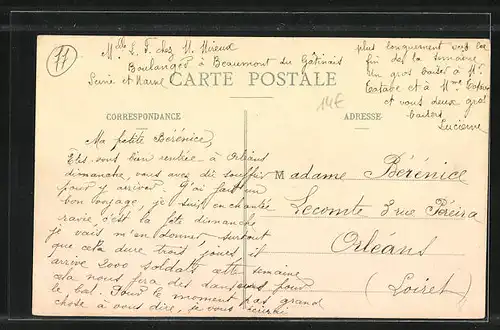 77
Mlle L. F. chez M. Mireux
Boulanger à Beaumont du Gâtinais
Seine et Marne
CARTE POSTALE
14€
plus longuement vers la
fin de la semaine
Un gros baiser à Mr
et à Mme
et vous deux gros
baisers
Lucienne
CORRESPONDANCE
ADRESSE
Ma petite Bérénice
Êtes-vous bien rentrée à Orléans
dimanche, vous avez dû souffrir
pour y arriver. J'ai fait un
bon voyage, je suis enchantée
ravie, c'est la fête dimanche
je vais m'en donner, surtout
que cela dure trois jours, il
arrive 2000 soldats cette semaine
cela nous fera des danseurs pour
le bal. Pour le moment pas grand
chose à vous dire, je vous écrirai
Madame Bérénice
Lecomte 3 rue Pereira
Orléans
(Loiret)